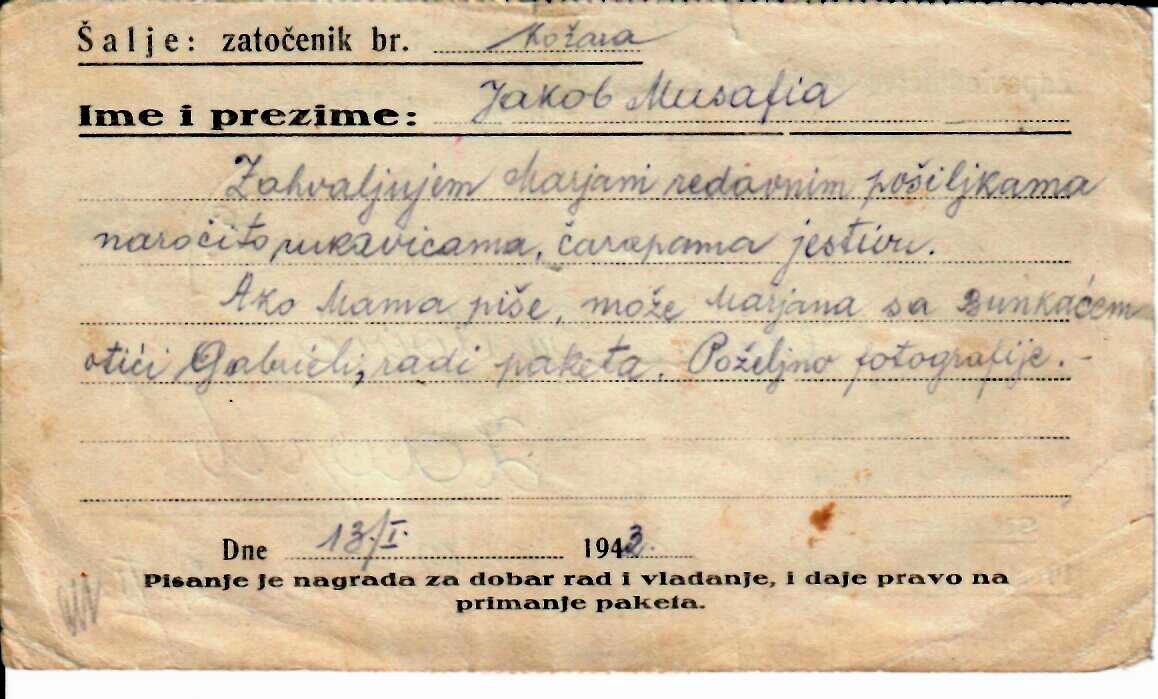 Šalje: zatočenik br. Kožara
Ime i prezime: Jakob Musafia
Zahvaljujem Marjani redovnim pošiljkama
naročito rukavicama, čarapama jestivu.
Ako Mama piše, može Marjana sa Bunkaćem
otići Gabrieli, radi paketa. Poželjno fotografije. -
Dne 13/I. 1943.
Pisanje je nagrada za dobar rad i vladanje, i daje pravo na
primanje paketa.